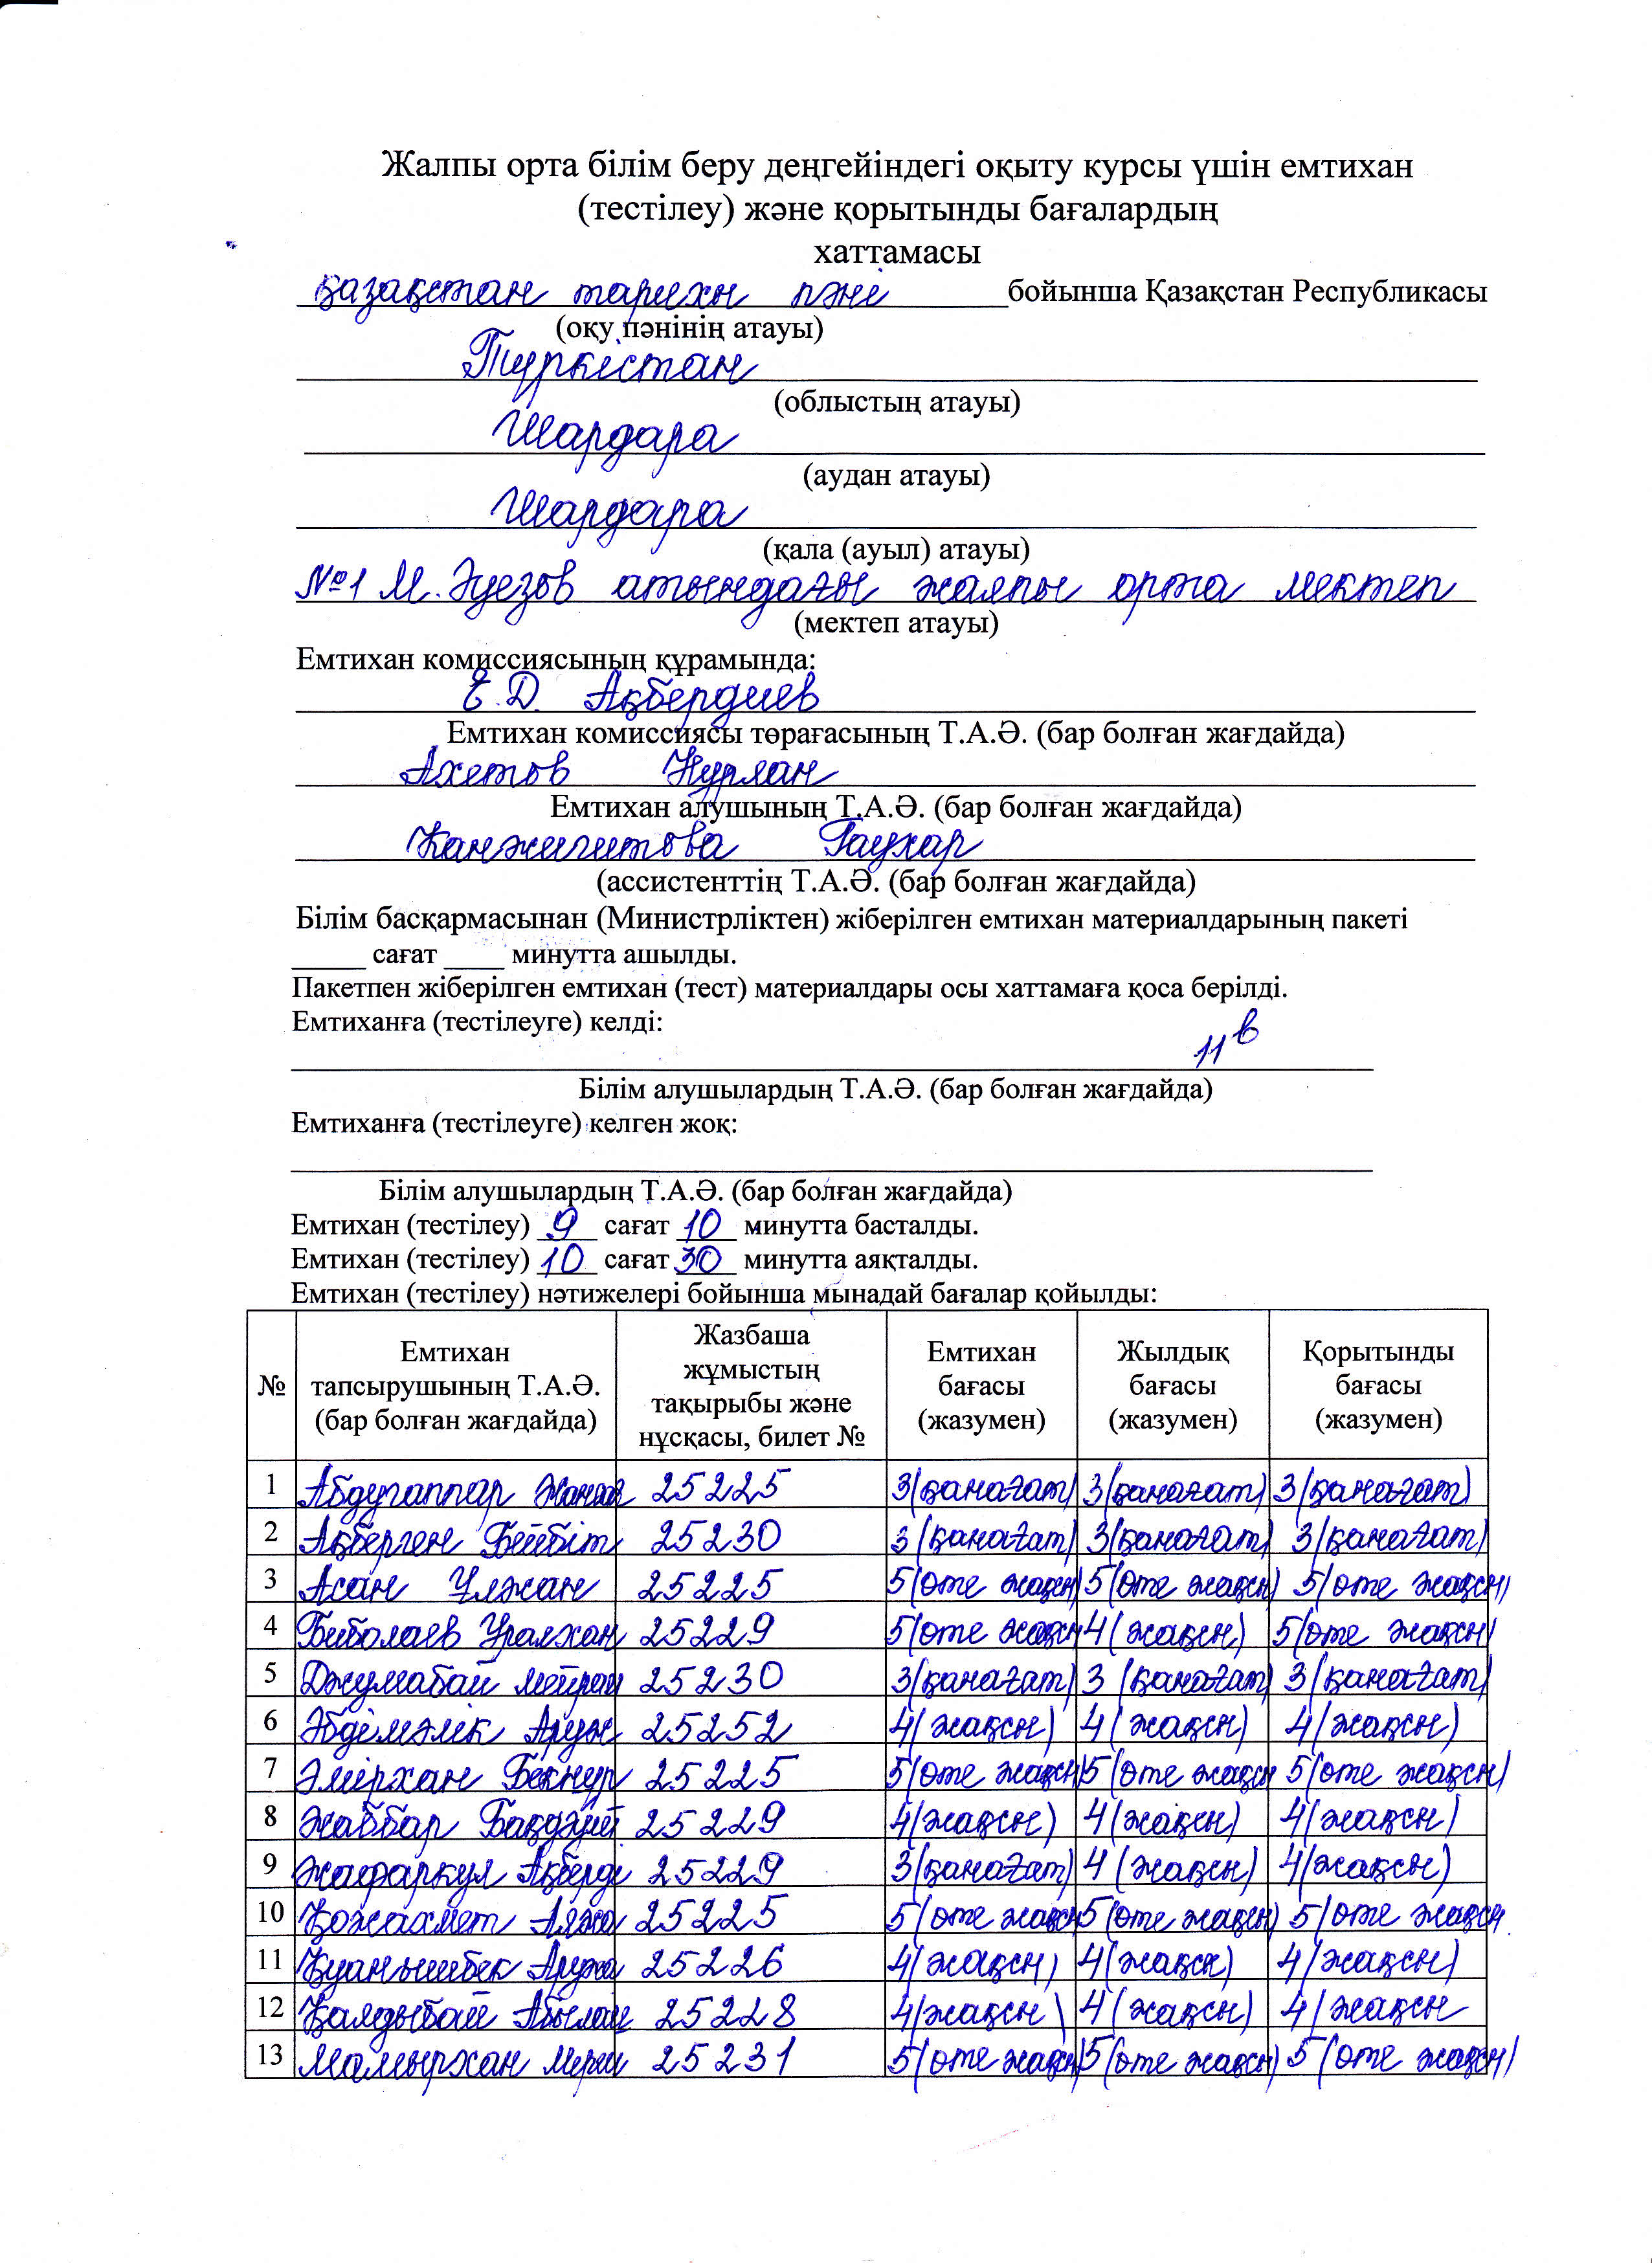 Жалпы орта білім беру деңгейіндегі оқыту курсы үшін емтихан
(тестілеу) және қорытынды бағалардың
хаттамасы
қазақстан тарихы пәні бойынша Қазақстан Республикасы
(оқу пәнінің атауы)
Түркістан
(облыстың атауы)
Шардара
(аудан атауы)
Шардара
(қала (ауыл) атауы)
№1 М.Әуезов атындағы жалпы орта мектеп
(мектеп атауы)
Емтихан комиссиясының құрамында:
Е.Д. Ақбердиев
Емтихан комиссиясы төрағасының Т.А.Ә. (бар болған жағдайда)
Ахетов Нурлан
Емтихан алушының Т.А.Ә. (бар болған жағдайда)
Канжигитова Гаухар
(ассистенттің Т.А.Ә. (бар болған жағдайда)
Білім басқармасынан (Министрліктен) жіберілген емтихан материалдарының пакеті
_____ сағат ____ минутта ашылды.
Пакетпен жіберілген емтихан (тест) материалдары осы хаттамаға қоса берілді.
Емтиханға (тестілеуге) келді:
11 в
Білім алушылардың Т.А.Ә. (бар болған жағдайда)
Емтиханға (тестілеуге) келген жоқ:
Білім алушылардың Т.А.Ә. (бар болған жағдайда)
Емтихан (тестілеу) 9 сағат 10 минутта басталды.
Емтихан (тестілеу) 10 сағат 30 минутта аяқталды.
Емтихан (тестілеу) нәтижелері бойынша мынадай бағалар қойылды:
№ Емтихан тапсырушының Т.А.Ә. (бар болған жағдайда) Жазбаша жұмыстың тақырыбы және нұсқасы, билет № Емтихан бағасы (жазумен) Жылдық бағасы (жазумен) Қорытынды бағасы (жазумен)
1 Абдугаппар 25225 3(қанағат) 3(қанағат) 3(қанағат)
2 Ақберген Бейбіт 25230 3(қанағат) 3(қанағат) 3(қанағат)
3 Асан Ұлжан 25225 5(өте жақсы) 5(өте жақсы) 5(өте жақсы)
4 Биболаев Уралхан 25229 5(өте жақсы 4(жақсы) 5(өте жақсы)
5 Джумабай Мейрам 25230 3(қанағат) 3(қанағат) 3(қанағат)
6 Әбдімәлік Аружн 25252 4(жақсы) 4(жақсы) 4(жақсы)
7 Әмірхан Бекнұр 25225 5(өте жақсы) 5(өте жақсы 5(өте жақсы)
8 Жаббар 25229 4(жақсы) 4(жақсы) 4(жақсы)
9 Жафаркул Ақберді 25229 3(қанағат) 4(жақсы) 4(жақсы)
10 Қожахмет 25225 5(өте жақсы 5(өте жақсы) 5(өте жақсы
11 Қуанышбек Аружа 25226 4(жақсы) 4(жақсы) 4(жақсы)
12 Қалдыбай Абылай 25228 4(жақсы) 4(жақсы) 4(жақсы
13 Мамырхан 25231 5(өте жақсы) 5(өте жақсы) 5(өте жақсы)